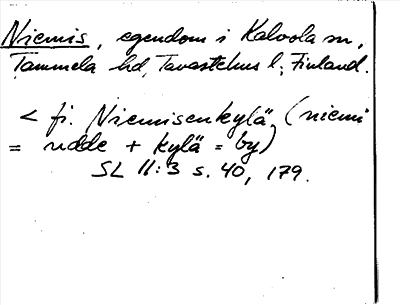 Niemis, egendom i Kalvola sn,
Tammela hd, Tavastehus l; Finland.
< fi. Niemisenkylä (niemi
= udde + kylä = by)
SL II:3 s. 40, 179.